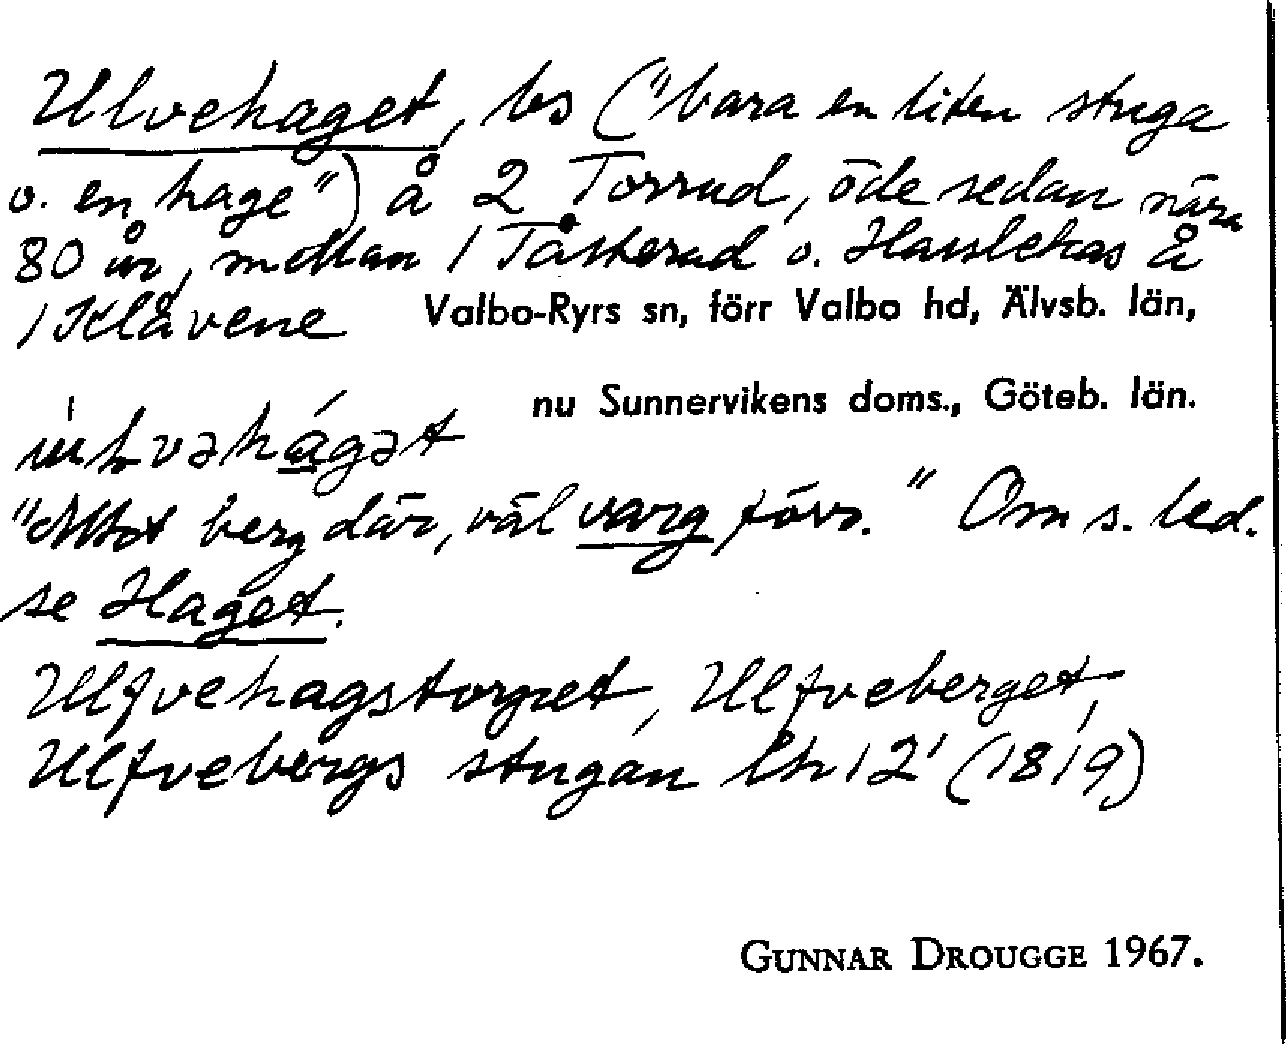 Ulvehaget, bs ("bara en liten stuga
o. en hage") å 2 Torrud, öde sedan nära
80 år, mellan 1 Tåkerud o. Hasslekas å
1 Klåvene Valbo-Ryrs sn, förr Valbo hd, Älvsb. län,
nu Sunnervikens doms., Göteb. län.
"Mot berg där, väl varg förr." Om s. led.
se Haget.
Ulfvehagstorpet, Ulfveberget,
Ulfvebergs stugan lhr 12' (1819)
GUNNAR DROUGGE 1967.